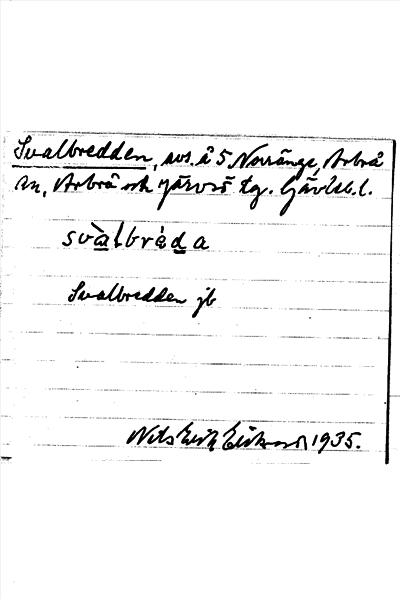 Svalbredden, avs. å 5 Norränge, Arbrå
sn, Arbrå och Järvsö tg. Gävleb. l.
svàlbrèda
Svalbredden jb
Nils Erik Eriksson 1935.